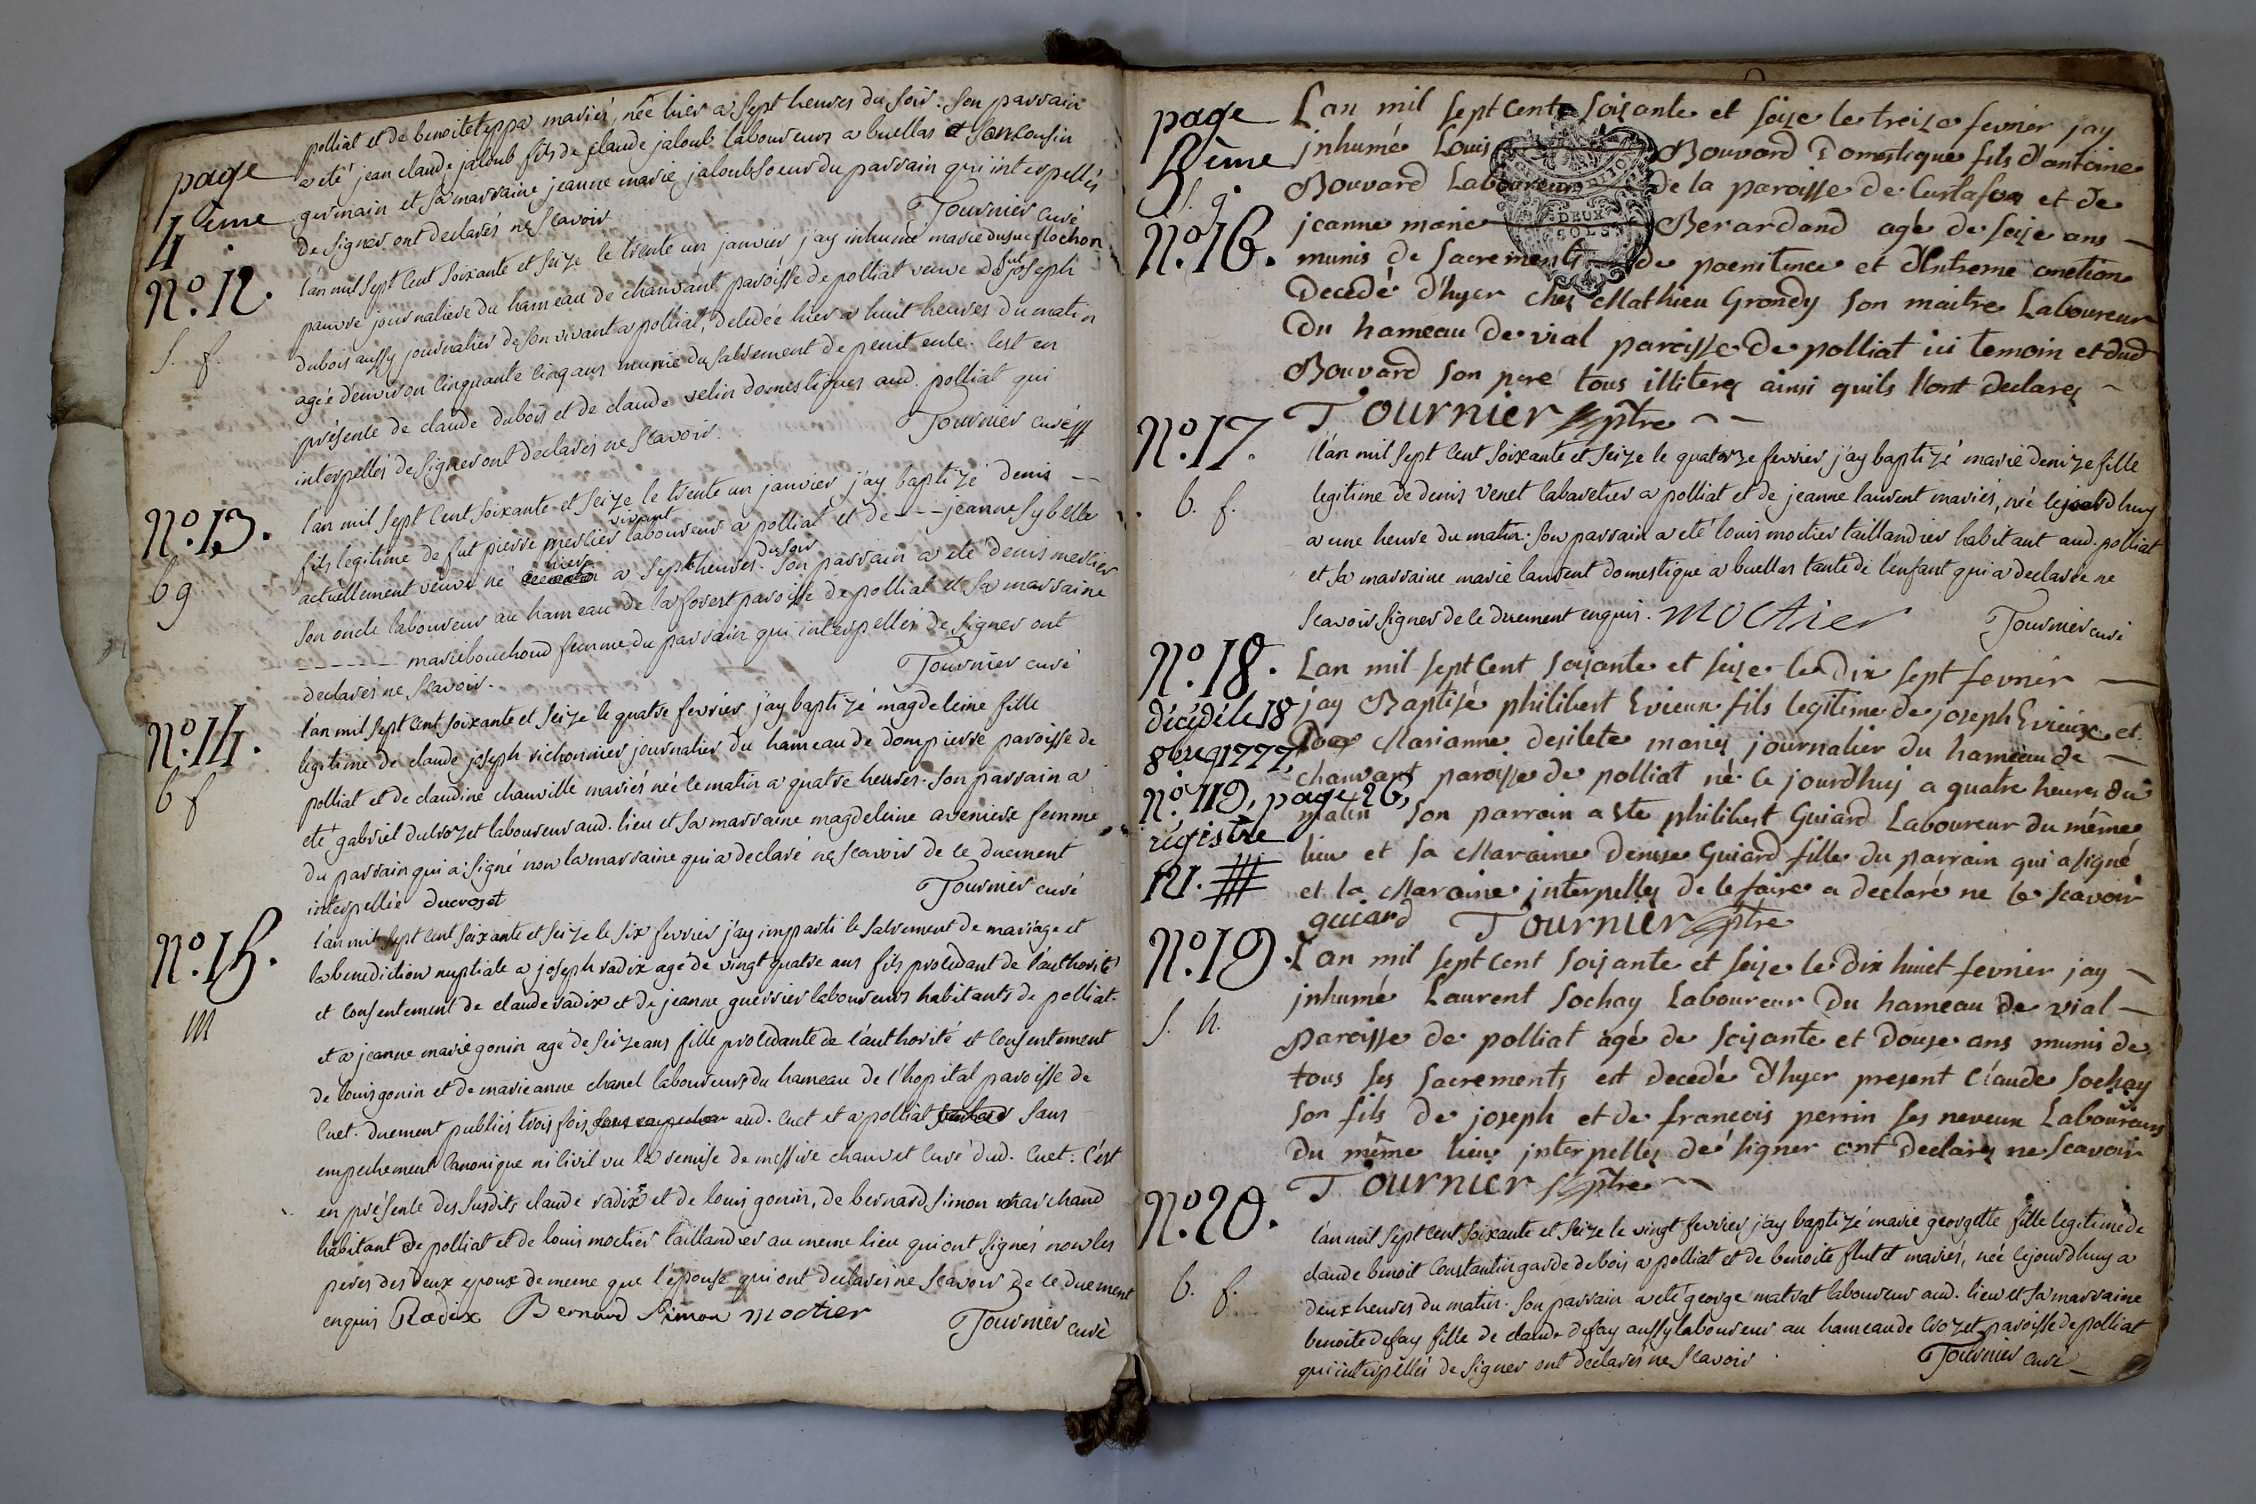 page
4ème
polliat et de benoite teppa mariés, née hier a sept heures du soir. son parrain
a eté jean claude jaloub fils de claude jaloub laboureurs a buellas et son cousin
germain et sa marraine jeanne marie jaloub soeur du parrain qui interpellés
de signer ont declarés ne scavoir
Tournier curé
N.º 12.
s. f.
l'an mil sept cent soixante et seize le trente un janvier j'ay inhumé marie dusuc flochon
pauvre journaliere du hameau de chanvant paroisse de polliat veuve de fut joseph
dubois aussy journalier de son vivant a polliat, decedée hier a huit heures du matin
agée d'environ cinquante cinq ans munie du sacrement de penitence. c'est en
présence de claude dubois et de claude velin domestiques aud. polliat qui
interpellés de signer ont declarés ne scavoir.
Tournier curé
N.º 13.
b g
l'an mil sept cent soixante et seize le trente un janvier j'ay baptizé denis
fils legitime de fut pierre merlier vivant laboureur a polliat et de --- jeanne sybelle
actuellement veuve né hier a sept heures du soir. son parrain a eté denis merlier
son oncle laboureur au hameau de la forest paroisse de polliat et sa marraine
------- marie bouchoud femme du parrain qui interpellés de signer ont
declarés ne scavoir.
Tournier curé
N.º 14.
b f
l'an mil sept cent soixante et seize le quatre fevrier j'ay baptizé magdeleine fille
legitime de claude joseph richonnier journalier du hameau de dompierre paroisse de
polliat et de claudine chanville mariés née le matin a quatre heures. son parrain a
eté gabriel ducrozet laboureur aud. lieu et sa marraine magdeleine aveniere femme
du parrain qui a signé non la marraine qui a declaré ne scavoir de ce duement
interpellée ducroset
Tournier curé
N.º 15.
m
l'an mil sept cent soixante et seize le six fevrier j'ay imparti le sacrement de mariage et
la benediction nuptiale a joseph radix agé de vingt quatre ans fils procedant de l'authorité
et consentement de claude radix et de jeanne guerrier laboureurs habitants de polliat.
et a jeanne marie gonin agé de seize ans fille procedante de l'authorité et consentement
de louis gonin et de marie anne chanel laboureurs du hameau de l'hopital paroisse de
cuet. duement publiés trois fois aud. cuet et a polliat sans
empechement canonique ni civil vu la remise de messire chauvet curé dud. cuet: c'est
en présence des susdits claude radix et de louis gonin, de bernard simon marchand
habitant de polliat et de louis moctier taillandier au meme lieu qui ont signés non les
peres des deux epoux de meme que l'épouse qui ont declarés ne scavoir de ce duement
enquis Radix Bernard Simon moctier
Tournier curé
page
5ème
s. g.
N.º 16.
Lan mil sept cent soisante et seise le treise fevrier jay
jnhumé Louis Bouvard Domestique fils d'antoine
Bouvard Laboureur de la paroisse de Curtafon et de
jeanne marie Berardand agé de seise ans
munis de sacrements de poenitence et d'Extreme onction
Decedé d'hyer ches Mathieu Grondy son maitre Laboureur
Du hameau de vial paroisse de polliat ici temoin et dud
Bouvard son pere tous illiteres ainsi quils l'ont Declares
Tournier ptre
DEUX
SOLS
N.º 17.
b. f.
l'an mil sept cent soixante et seize le quatorze fevrier j'ay baptizé marie denize fille
legitime de denis venet cabaretier a polliat et de jeanne laurent mariés, née cejourd'huy
a une heure du matin: son parrain a eté louis moctier taillandier habitant aud. polliat
et sa marraine marie laurent domestique a buellas tante de l'enfant qui a declarée ne
scavoir signer de ce duement enquis. moctier
Tournier curé
N.º 18.
décédé le 18
8bre 1777,
N.º 119, page 26,
régistre
Lan mil sept cent soisante et seise le dix sept fevrier
jay Baptisé philibert Evieux fils legitime de joseph Evieux et
Marianne desilete maries journalier du hameau de
chanvant paroisse de polliat né ce jourdhuy a quatre heures du
matin son parrain a ete philibert Guiard Laboureur du même
lieu et sa Maraine Denise Guiard fille du parrain qui a signé
et la Maraine interpelles de le faire a declaré ne le scavoir
guiard Tournier ptre
N.º 19.
s. h.
Lan mil sept cent soisante et seise le dix huict fevrier jay
jnhumé Laurent Sochay Laboureur Du hameau de vial
paroisse de polliat agé de soisante et Douse ans munis de
tous ses sacrements est decedé d'hyer present Claude Sochay
son fils de joseph et de francois perrin ses neveux Laboureurs
Du même lieu interpelles de signer ont Declares ne scavoir
Tournier ptre
N.º 20.
b. f.
l'an mil sept cent soixante et seize le vingt fevrier j'ay baptizé marie georgette fille legitime de
claude benoit constantin garde de bois a polliat et de benoite flutet mariés, née cejourd'huy a
deux heures du matin. son parrain a eté george matrat laboureur aud. lieu et sa marraine
benoite defay fille de claude defay aussy laboureur au hameau de crozet paroisse de polliat
qui interpellés de signer ont declarés ne scavoir
Tournier curé